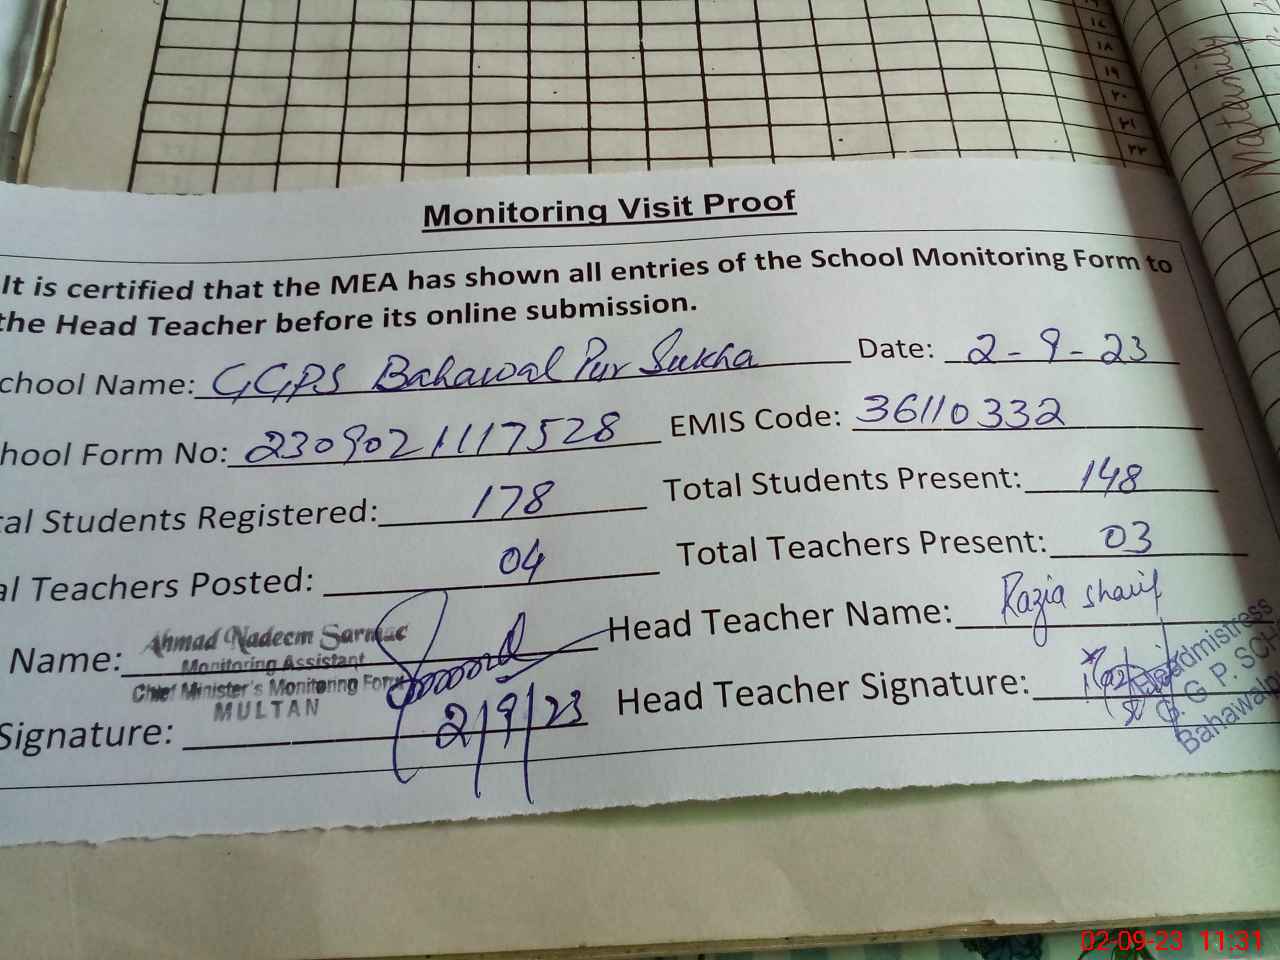 ۱۶
۱۸
۱۹
۲۰
۲۱
۲۲
Monitoring Visit Proof
It is certified that the MEA has shown all entries of the School Monitoring Form to
the Head Teacher before its online submission.
chool Name: GGPS Bahawal Pur Sukha Date: 2-9-23
hool Form No: 2309021117528 EMIS Code: 36110332
tal Students Registered: 178 Total Students Present: 148
al Teachers Posted: 04 Total Teachers Present: 03
Name: Ahmad Nadeem Sarwar Head Teacher Name: Razia Sharif
Monitoring Assistant
Chief Minister's Monitoring Force
MULTAN
Signature: 2/9/23 Head Teacher Signature:
Headmistress
G. G. P. SCH
Bahawalp
02-09-23 11:31